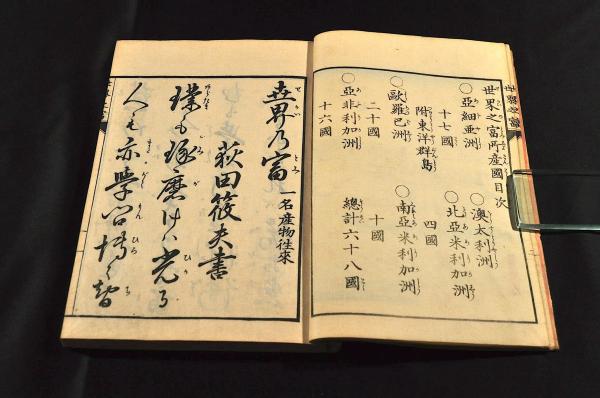 世界之富所産國目次
○亞細亜洲
○澳太利洲
十七國
○北亞米利加洲
附東洋群島
四國
○歐羅巴洲
○南亞米利加洲
二十國
十國
○亞非利加洲
總計六十八國
十六國
世界乃富 一名産物往來
荻田筱夫書
璞も琢磨けハ光る
人も亦學問博く智